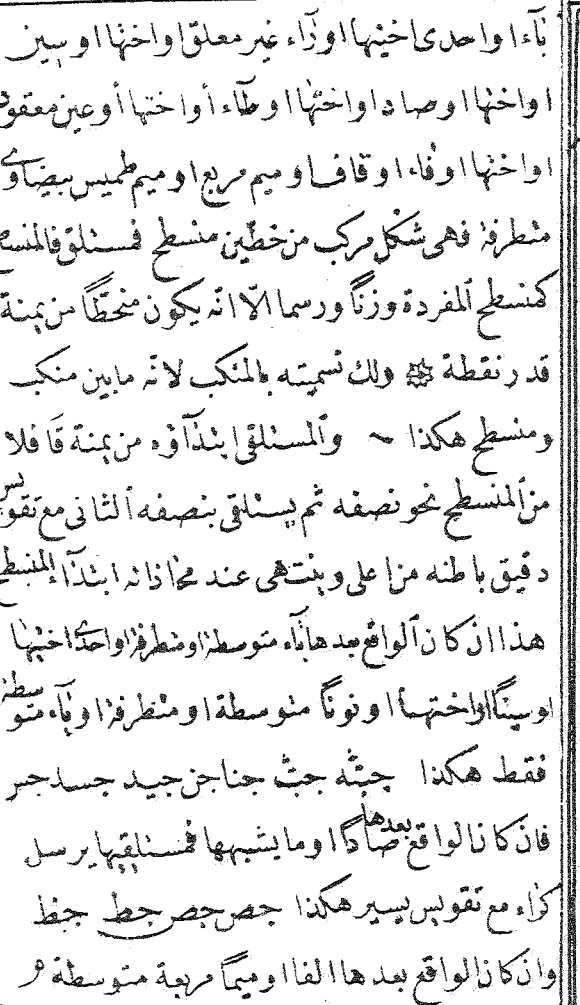 باء او احدى اختيها او راء غير معلق او اختها او سين
او اختها او صاد او اختها او طاء أو اختها أو عين معقود
او اختها او فاء او قاف او ميم مربع او ميم طميس بيضاوي
متطرفة فهى شكل مركب من خطين منسطح فمستلق فالمنسطح
كمنسطح المفردة وزنًا ورسما الّا انّه يكون منحطًّا من يمنة
قدر نقطة ولك تسميته بالمنكب لانّه مابين منكب
ومنسطح هكذا والمستلقى ابتدآؤه من يمنة قَافلا
من المنسطح نحو نصفه ثم يستلقى بنصفه الثانى مع تقويس
دقيق باطنه من اعلى وينتهى عند محاذاته ابتدآء المنسطح
هذا ان كان الواقع بعدها باء متوسطة او متطرفة او احدى اختيها
او سينًا او اختها او نونًا متوسطة او متطرفة او ياء متوسطة
فقط هكذا جبثه جث جنا جن جيد جسد جس
فان كان الواقع بعدها صادًا او ما يشبهها فمستلقيها يرسل
كراء مع تقويس يسير هكذا جص جص جط جظ
وان كان الواقع بعدها الفا او ميمًا مربعة متوسطة او